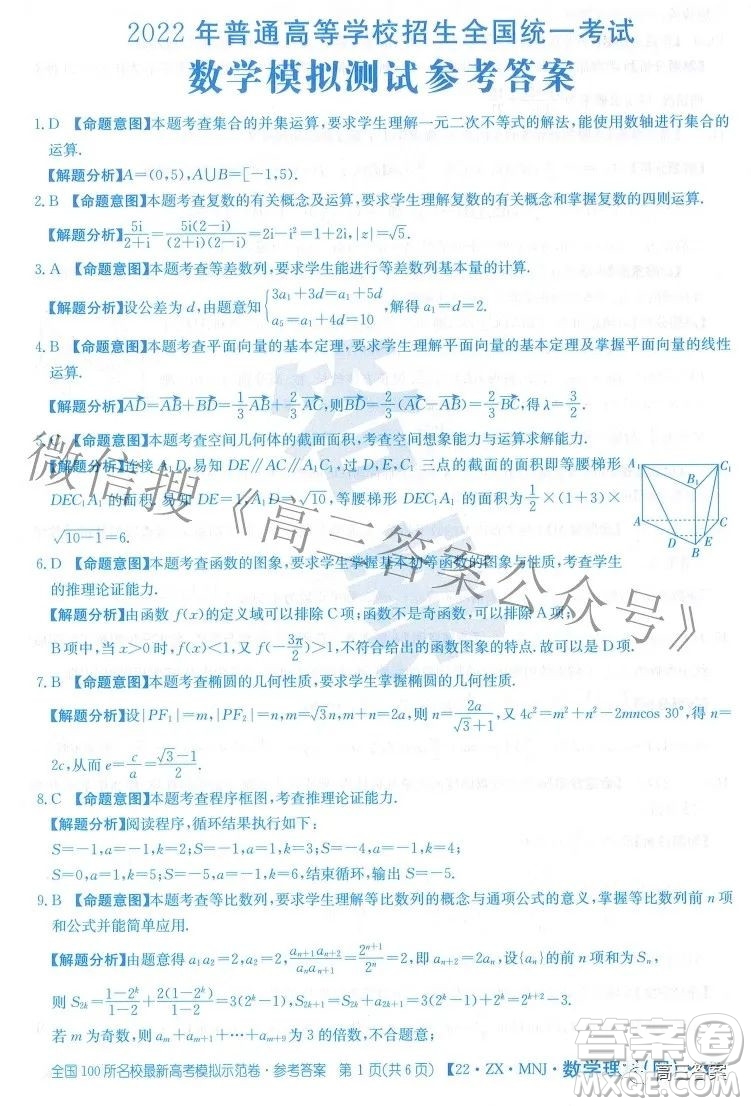 2022 年普通高等学校招生全国统一考试
数学模拟测试参考答案
1. D 【命题意图】本题考查集合的并集运算,要求学生理解一元二次不等式的解法,能使用数轴进行集合的
运算.
【解题分析】A=(0,5),A∪B=[-1,5).
2. B 【命题意图】本题考查复数的有关概念及运算,要求学生理解复数的有关概念和掌握复数的四则运算.
【解题分析】5i/(2+i)=5i(2-i)/((2+i)(2-i))=2i-i²=1+2i,|z|=√5.
3. A 【命题意图】本题考查等差数列,要求学生能进行等差数列基本量的计算.
【解题分析】设公差为 d,由题意知{3a₁+3d=a₁+5d a₅=a₁+4d=10,解得 a₁=d=2.
4. B 【命题意图】本题考查平面向量的基本定理,要求学生理解平面向量的基本定理及掌握平面向量的线性
运算.
【解题分析】AD=AB+BD=1/3 AB+2/3 AC,则BD=2/3(AC-AB)=2/3 BC,得 λ=3/2.
【命题意图】本题考查空间几何体的截面面积,考查空间想象能力与运算求解能力.
【解题分析】连接 A₁D,易知 DE∥AC∥A₁C₁,过 D,E,C₁ 三点的截面的面积即等腰梯形
DEC₁A₁ 的面积,又 DE=1,A₁D=√10,等腰梯形 DEC₁A₁ 的面积为 1/2×(1+3)×
√(10-1)=6.
A₁ C₁ B₁ A C D B E
6. D 【命题意图】本题考查函数的图象,要求学生掌握基本初等函数的图象与性质,考查学生
的推理论证能力.
【解题分析】由函数 f(x)的定义域可以排除 C 项;函数不是奇函数,可以排除 A 项;
B 项中,当 x>0 时,f(x)<1,又 f(-3π/2)>1,不符合给出的函数图象的特点.故可以是 D 项.
7. B 【命题意图】本题考查椭圆的几何性质,要求学生掌握椭圆的几何性质.
【解题分析】设|PF₁|=m,|PF₂|=n,m=√3n,m+n=2a,则 n=2a/(√3+1),又 4c²=m²+n²-2mncos 30°,得 n=
2c,从而 e=c/a=(√3-1)/2.
8. C 【命题意图】本题考查程序框图,考查推理论证能力.
【解题分析】阅读程序,循环结果执行如下:
S=-1,a=1,k=2;S=-1,a=-1,k=3;S=-4,a=1,k=4;
S=0,a=-1,k=5;S=-5,a=1,k=6,结束循环,输出 S=-5.
9. B 【命题意图】本题考查等比数列,要求学生理解等比数列的概念与通项公式的意义,掌握等比数列前 n 项
和公式并能简单应用.
【解题分析】由题意得 a₁a₂=2,a₂=2,aₙ₊₁aₙ₊₂/(aₙaₙ₊₁)=2ⁿ⁺¹/2ⁿ=2,即 aₙ₊₂=2aₙ,设{aₙ}的前 n 项和为 Sₙ,
则 S₂ₖ=(1-2ᵏ)/(1-2)+2(1-2ᵏ)/(1-2)=3(2ᵏ-1),S₂ₖ₊₁=S₂ₖ+a₂ₖ₊₁=3(2ᵏ-1)+2ᵏ=2ᵏ⁺²-3.
若 m 为奇数,则 aₘ+aₘ₊₁+⋯+aₘ₊ₙ 为 3 的倍数,不合题意;
全国 100 所名校最新高考模拟示范卷·参考答案 第 1 页(共 6 页) 【22·ZX·MNJ·数学理
微信搜《高三答案公众号》
答案
答案圈
高三答案